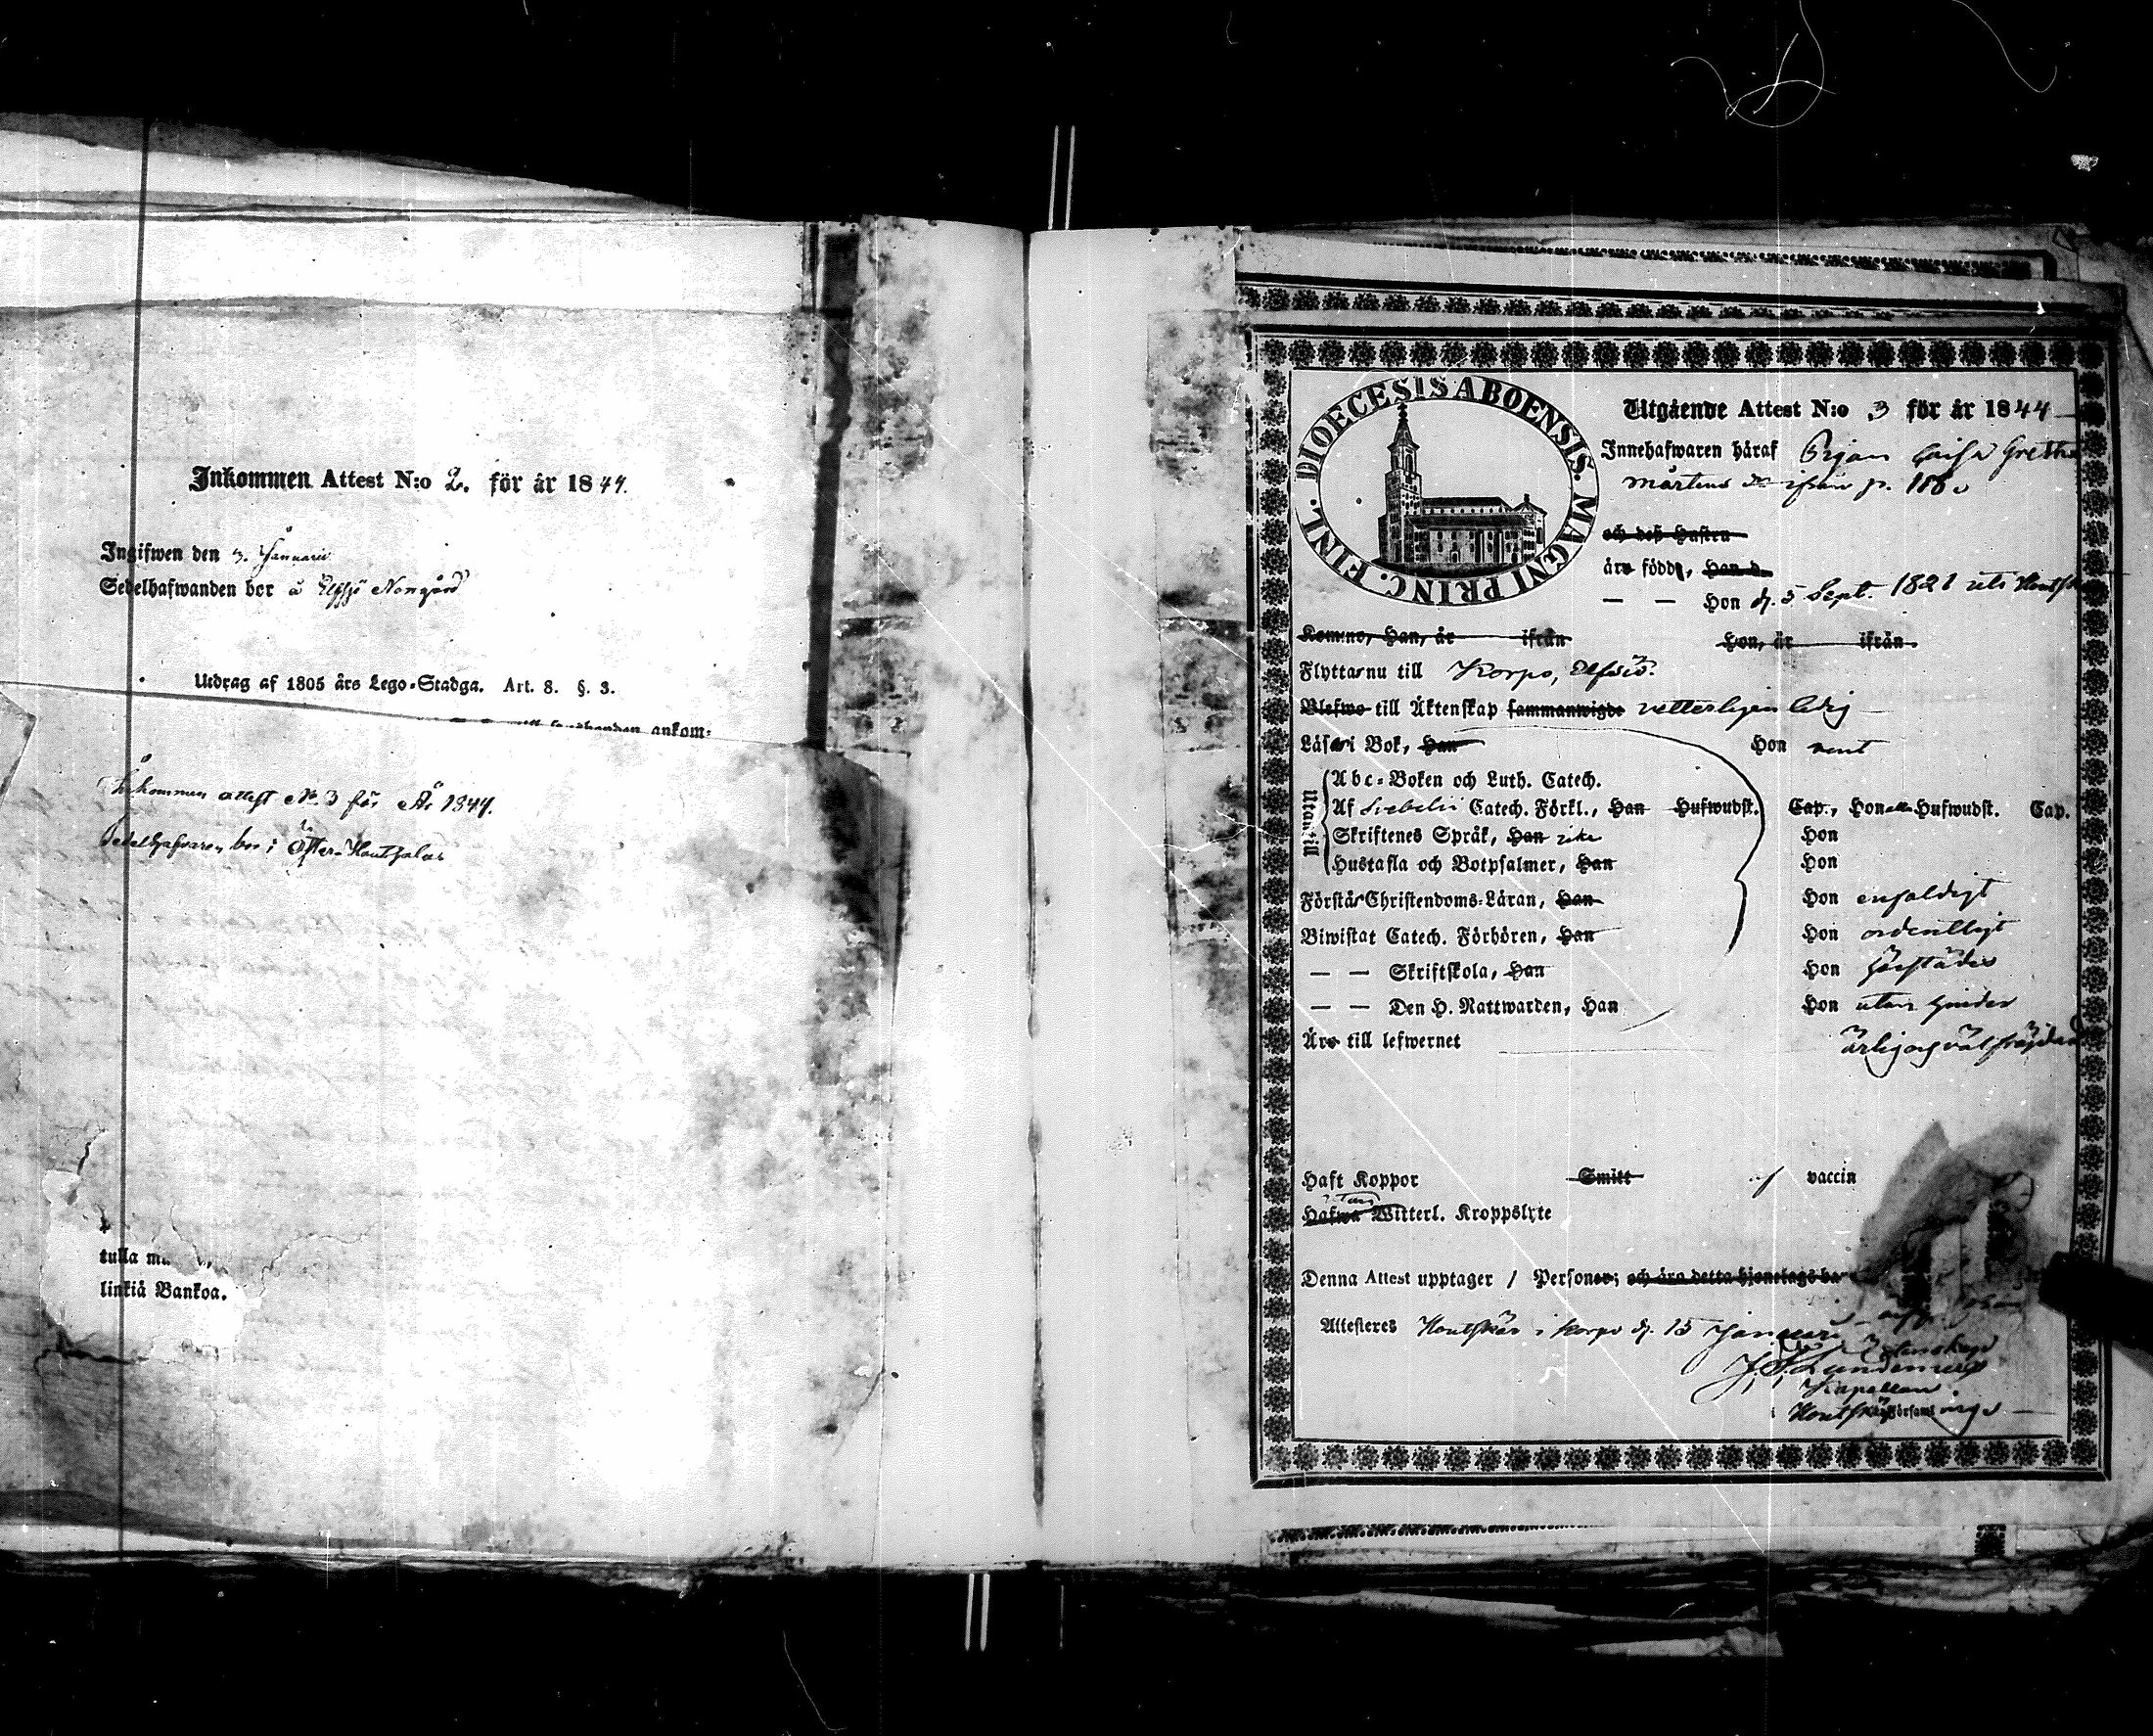 Inkommen Attest N:o 2. för år 1844.
Ingifwen den 3. Januarii
Sedelhafwanden bor å Elfsjö Norrgård
Utdrag af 1805 års Lego-Stadga. Art. 8. §. 3.
ankom:
Inkommen attest No. 3 för År 1844.
Sedelhafvaren bor i
tulla
linkiä Bankoa.
FINL. DIOECESIS ABOENSIS. MAGNI PRINC.
Utgående Attest N:o 3 för år 1844
Innehafwaren häraf Pigan Caisa Greta
Mårtens
och deß Hustru
äro född, Han d.
— — Hon d. 5 Sept. 1821 uti
Komne, Han, år ifrån Hon, år ifrån
Flyttar nu till Korpo, Elfsiö.
Blefwo till Äktenskap sammanwigde vetterligen ledig
Läser i Bok, Han Hon rent
Utantill
Abc-Boken och Luth. Catech.
Af Svebelii Catech. Förkl., Han Hufwudst. Cap., Hon alla Hufwudst. Cap.
Skriftenes Språk, Han icke Hon
Hustafla och Botpsalmer, Han Hon
Förstår Christendoms-Läran, Han Hon enfaldigt
Biwistat Catech. Förhören, Han Hon ordentligt
— — Skriftskola, Han Hon härstädes
— — Den H. Nattwarden, Han Hon utan hinder
Äro till lefwernet ärlig och välfrägdad
Haft Koppor Smitt vaccin
utan
Hafwa Witterl. Kroppslyte
Denna Attest upptager 1 Personer; och äro detta hjonelags
Attesteras Houtskär i Korpo d. 15 Januari
Kapellan
i Houtskärs Församling